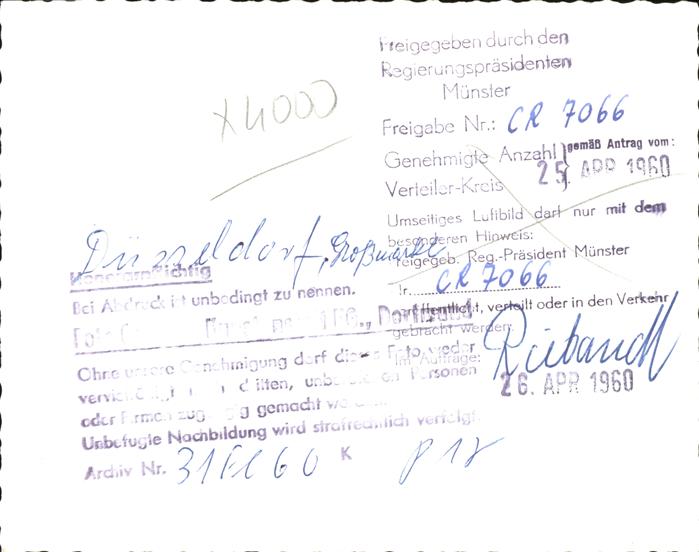 Freigegeben durch den
Regierungspräsidenten
Münster
Freigabe Nr.: CR 7066
Genehmigte Anzahl
Verteiler-Kreis
gemäß Antrag vom:
25. APR 1960
Umseitiges Luftbild darf nur mit dem
besonderen Hinweis:
freigeb. Reg.-Präsident Münster
Nr. CR 7066
öffentlicht, verteilt oder in den Verkehr
gebracht werden.
Im Auftrage:
26. APR 1960
X4000
Düsseldorf, Großmarkt
Honorarpflichtig
Bei Abdruck ist unbedingt zu nennen.
Foto Dortmund
Ohne unsere Genehmigung darf dieses Foto weder
vervielfältigt unbefugten Personen
oder Firmen zugängig gemacht werden.
Unbefugte Nachbildung wird strafrechtlich verfolgt.
Archiv Nr. K